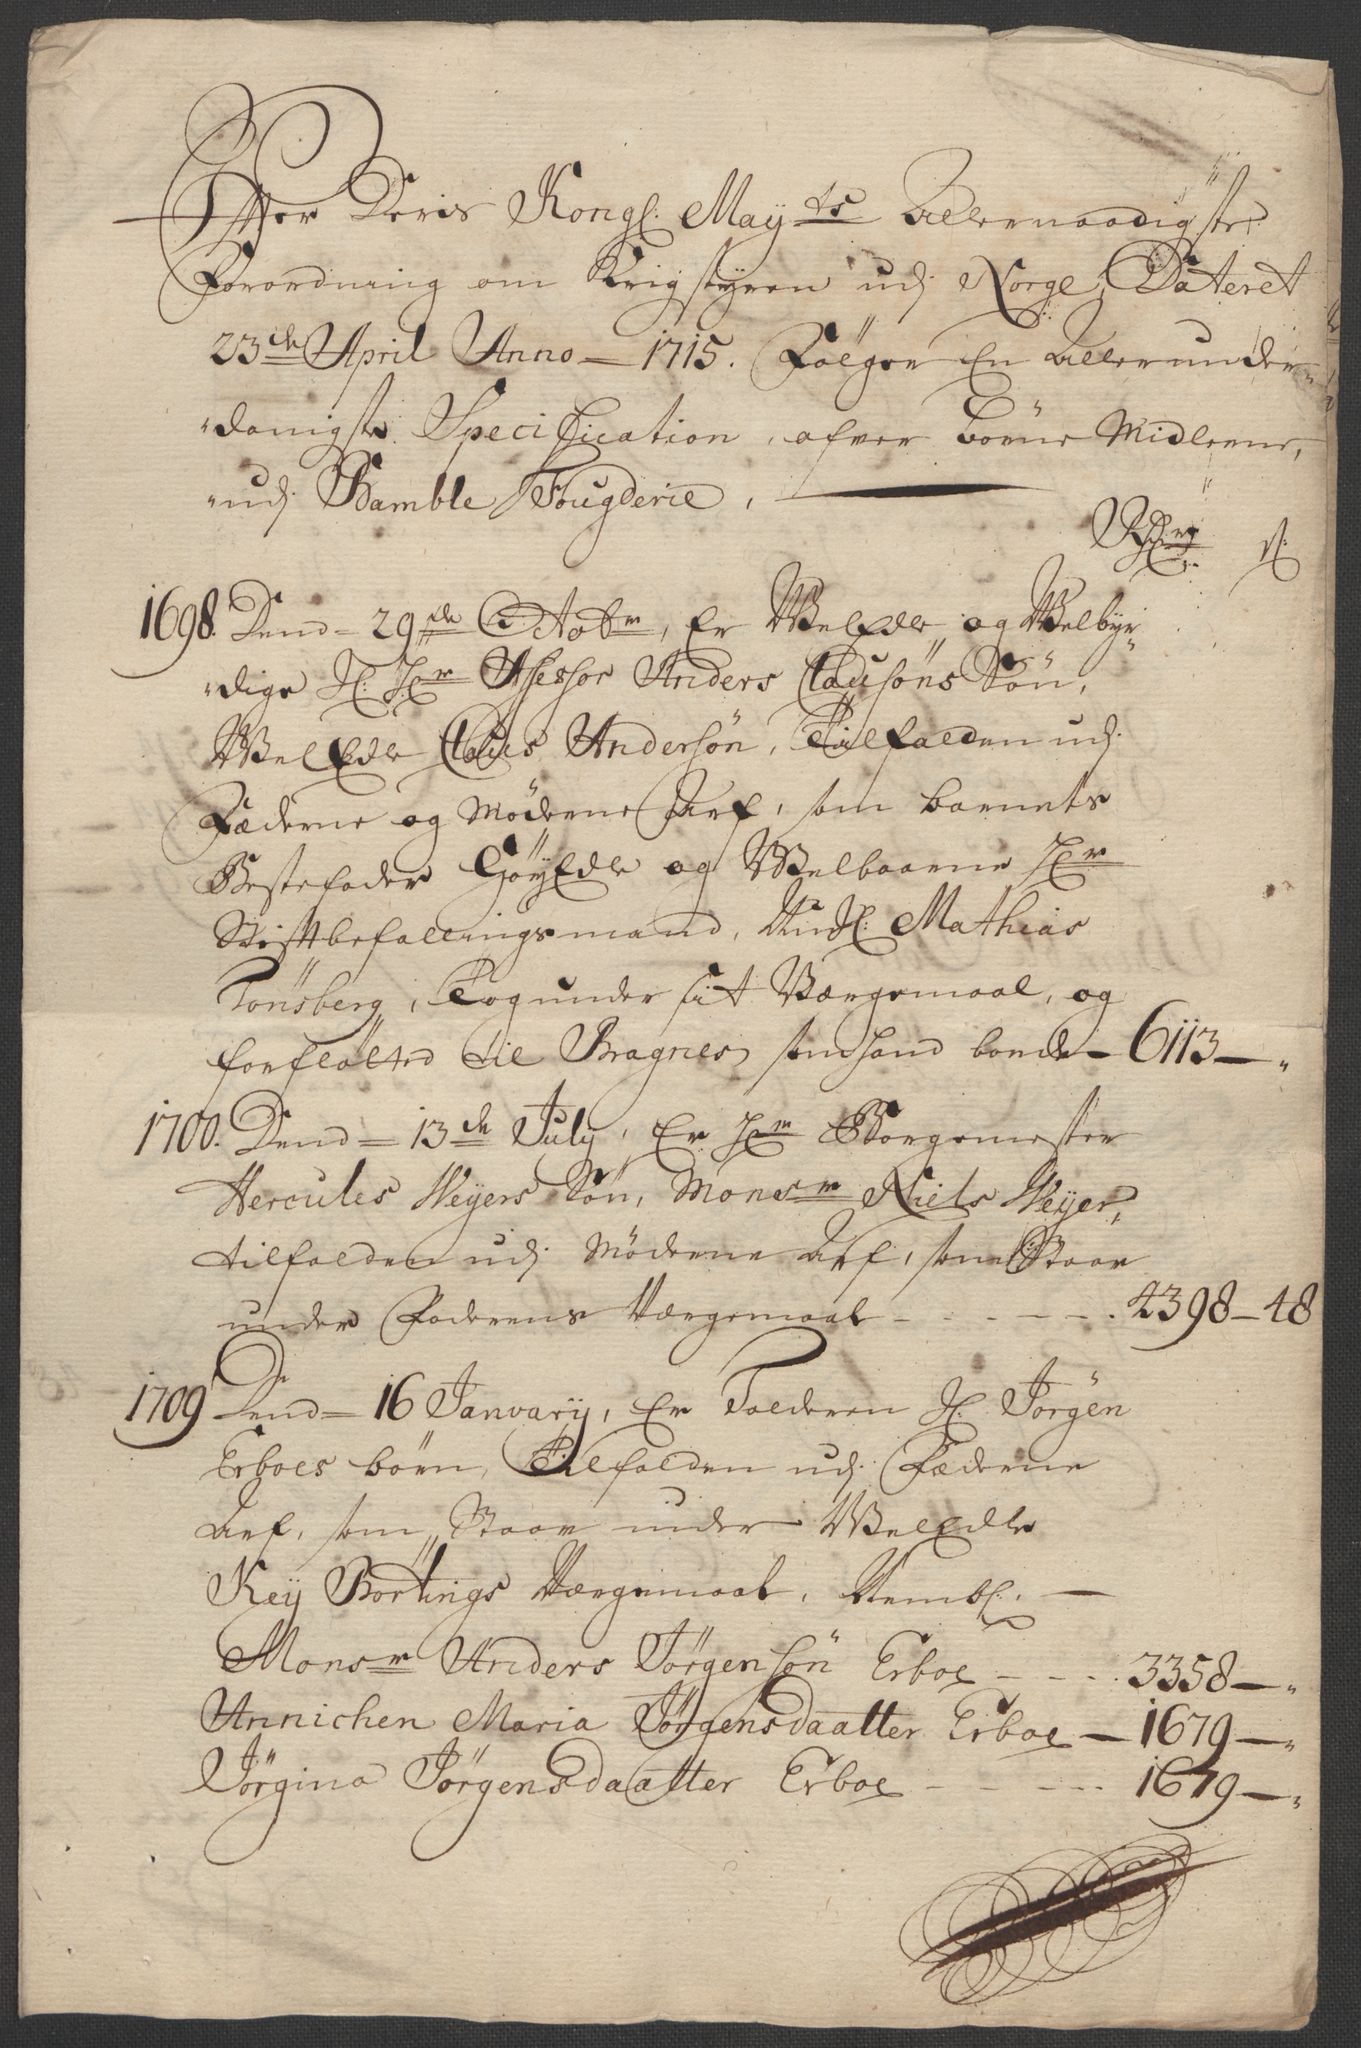 Effter Deris Kongl. May:ts Allernaadigste
Forordning om Krigstyren udj Norge, Dateret
23de April Anno 1715. Følger En Allerunder-
danigste Specification, ofver Børne Midlerne,
udj Bamble Fougderie,
Rdr ß
1698. Dend 29de Octobr, Er WelEdle og Welbyr-
dige Sl: Hr Assessor Anders Clausøns Søn,
WelEdle Claus Andersøn, Tilfalden udj
Fæderne og Møderne Arf, som barnets
Bestefader HøyEdle og Welbaarne Hr
Stiftbefallingsmand, Nu Sl: Mathias
Tonsberg, Tog under sit Værgemaal, og
forfløtted til Bragnes, hand boede 6113 — "
1700. Dend 13de July, Er Hr Borgemester
Hercules Weyers Søn, Monsr Niels Weyer,
tilfalden udj Møderne Arf, som Staar
under Faderens Værgemaal - - - - - 4398 — 48
1709 Dend 16 January, Er Tolderen Sl: Jørgen
Erboes børn, Tilfalden udj Fæderne
Arf, som Staar under WelEdle
Key Børtings Værgemaal, Nembl. —
Monsr Anders Jørgensøn Erboe - - - - 3358 — "
Annichen Maria Jørgensdaatter Erboe — 1679 — "
Jørgina Jørgensdaatter Erboe - - - - - 1679 — "